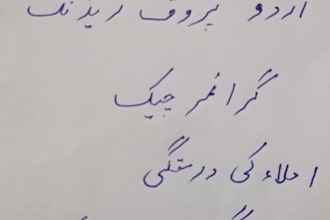 اردو پروف ریڈنگ
گرائمر چیک
املاء کی درستگی